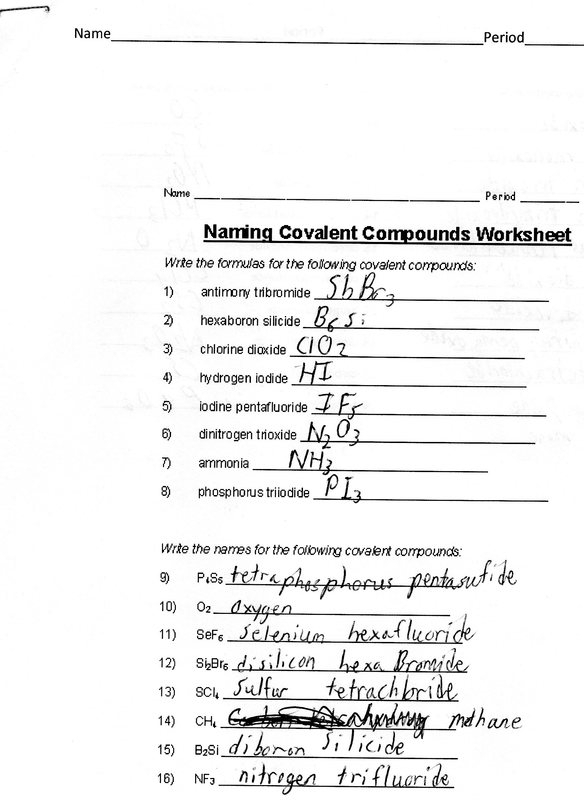 Name Period
Name Period
Naming Covalent Compounds Worksheet
Write the formulas for the following covalent compounds:
1) antimony tribromide SbBr3
2) hexaboron silicide B6Si
3) chlorine dioxide ClO2
4) hydrogen iodide HI
5) iodine pentafluoride IF5
6) dinitrogen trioxide N2O3
7) ammonia NH3
8) phosphorus triiodide PI3
Write the names for the following covalent compounds:
9) P4S5 tetraphosphorus pentasufide
10) O2 oxygen
11) SeF6 selenium hexafluoride
12) Si2Br6 disilicon hexa Bromide
13) SCl4 sulfur tetrachloride
14) CH4 methane
15) B2Si diboron silicide
16) NF3 nitrogen trifluoride